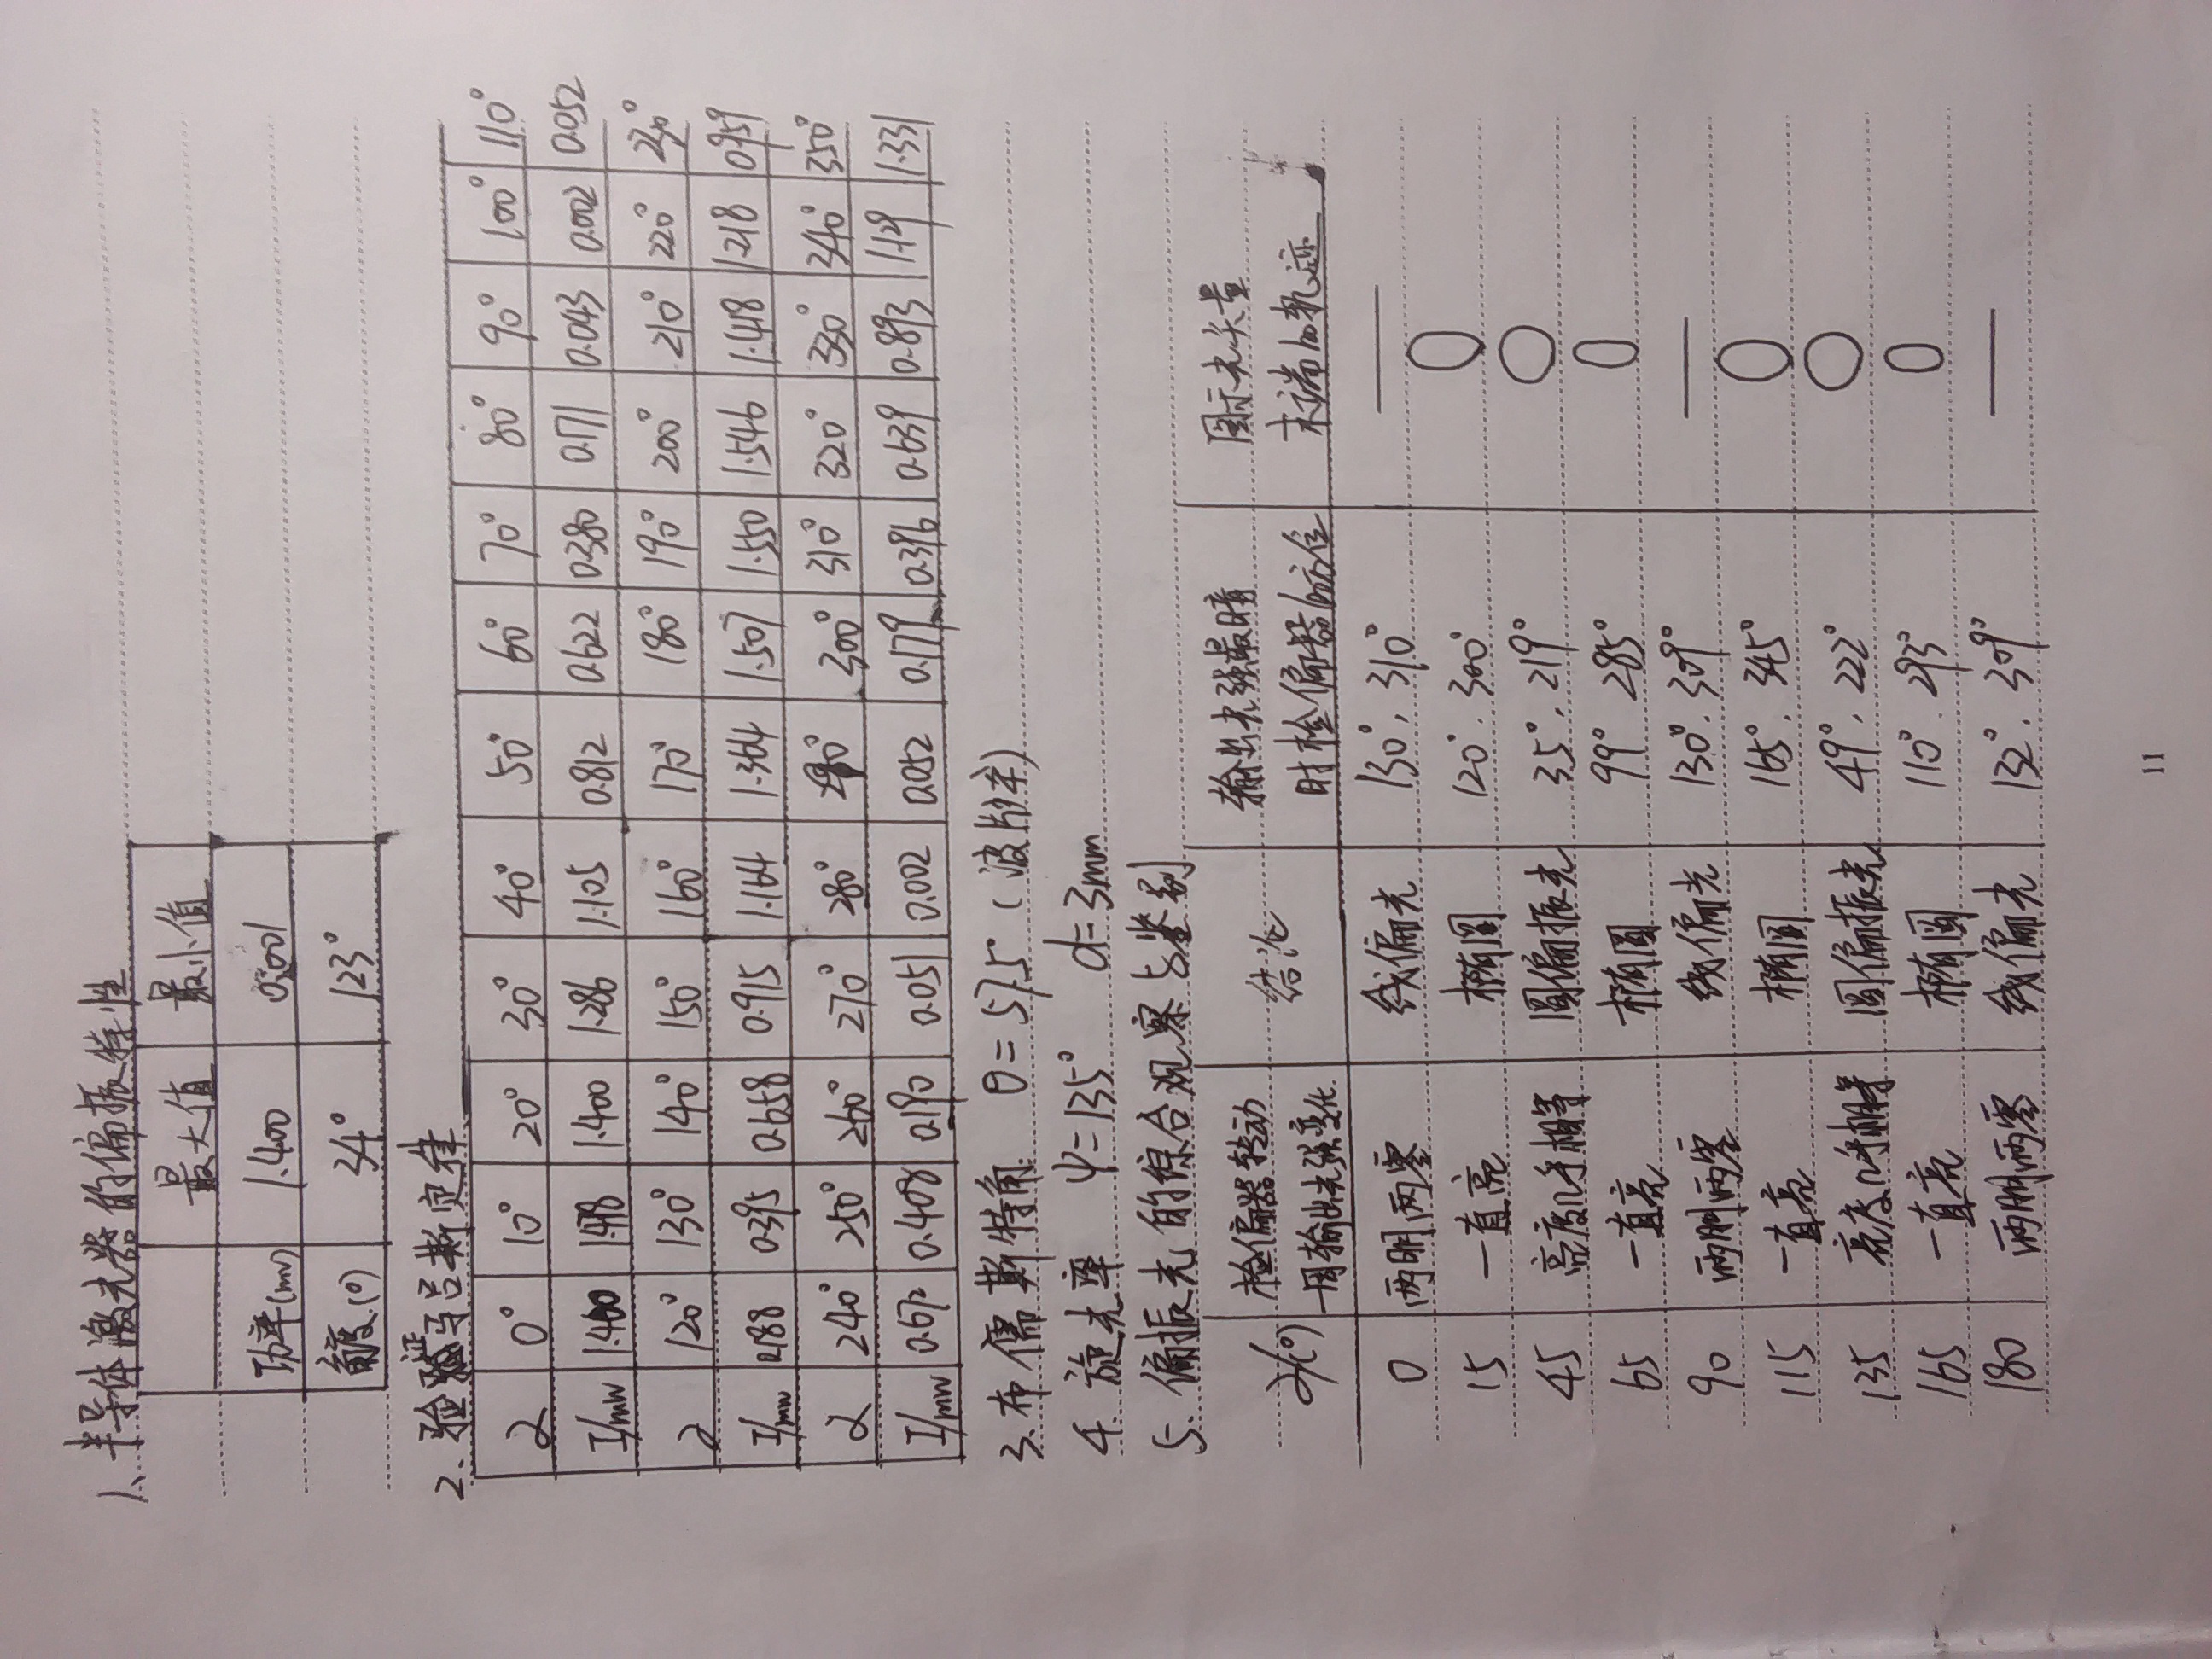 1、半导体激光器的偏振特性
最大值 最小值
功率(mw) 1.400 0.001
角度(°) 34° 123°
2、验证马吕斯定律
α 0° 10° 20° 30° 40° 50° 60° 70° 80° 90° 100° 110°
I/mw 1.400 1.286 1.105 0.812 0.622 0.380 0.171 0.043 0.002 0.052
α 120° 130° 140° 150° 160° 170° 180° 190° 200° 210° 220° 230°
I/mw 0.188 0.395 0.658 0.915 1.164 1.364 1.507 1.550 1.546 1.448 1.218 0.959
α 240° 250° 260° 270° 280° 290° 300° 310° 320° 330° 340° 350°
I/mw 0.672 0.408 0.190 0.051 0.002 0.052 0.179 0.396 0.639 0.893 1.129 1.331
3、布儒斯特角 θ=57.5 (波片法)
4、旋光率 ψ=135° d=3mm
5、偏振光的综合观察与鉴别
α/(°) 检偏器转动一周输出光强变化 结论 输出光强最暗时检偏器的方位 图示光矢量末端的轨迹
0 两明两零 线偏光 130°、310°
15 一直亮 椭圆 120°、300°
45 亮度几乎相等 圆偏振光 35°、219°
65 一直亮 椭圆 99° 285°
90 两明两零 线偏光 130°、309°
115 一直亮 椭圆 165°、345°
135 亮度几乎相等 圆偏振光 49°、222°
165 一直亮 椭圆 110°、293°
180 两明两零 线偏光 132°、309°
11